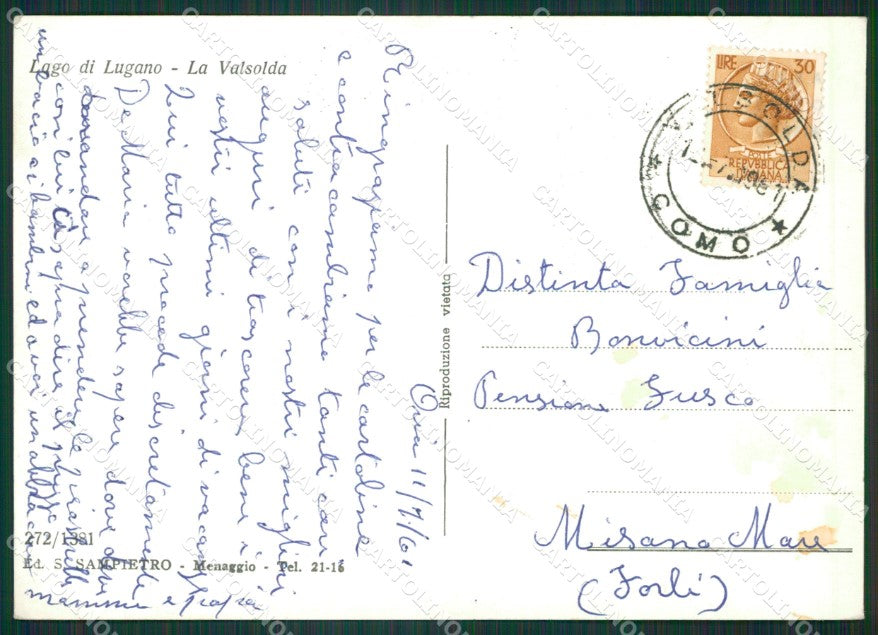 Lago di Lugano - La Valsolda
Oria 11/7/61
Ringraziamo per le cartoline
e contraccambiamo tanti cari
saluti con i nostri migliori
auguri di trascorrere bene i
vostri ultimi giorni di vacanza
Qui tutto procede discretamente
De Maria vorrebbe sapere dove deve
andare a prendere la
con lui
un bacio ai bambini ed a voi un abbraccio
mamma e
272/1381
Ed. S. SAMPIETRO - Menaggio - Tel. 21-16
Riproduzione vietata
LIRE 30
POSTE
REPVBBLICA
ITALIANA
VALSOLDA
1961
COMO
Distinta Famiglia
Bonvicini
Pensione Fusco
Misano Mare
(Forlì)
CARTOLINOMANIA